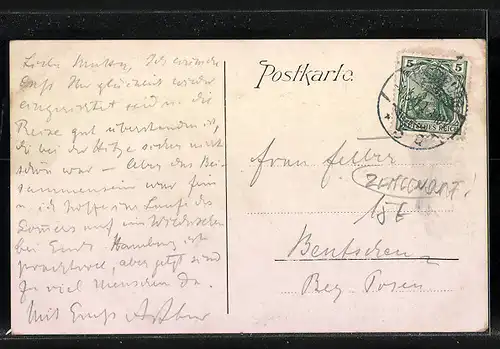 Liebe Mutter, Ich
Ihr glücklich wieder
eingerichtet seid u. die
Reise gut überstanden ist,
die bei der Hitze sicher nicht
schön war — Aber das Bei-
sammensein war fein
u. ich hoffe im Laufe des
Sommers auf ein Wiedersehn
bei Euch. Hamburg ist
prachtvoll, aber jetzt sind
zu viel Menschen da.
Mit Gruss Arthur
Postkarte
5 5
REICH
Frau Felber
18 E
Bentschen
Bez. Posen